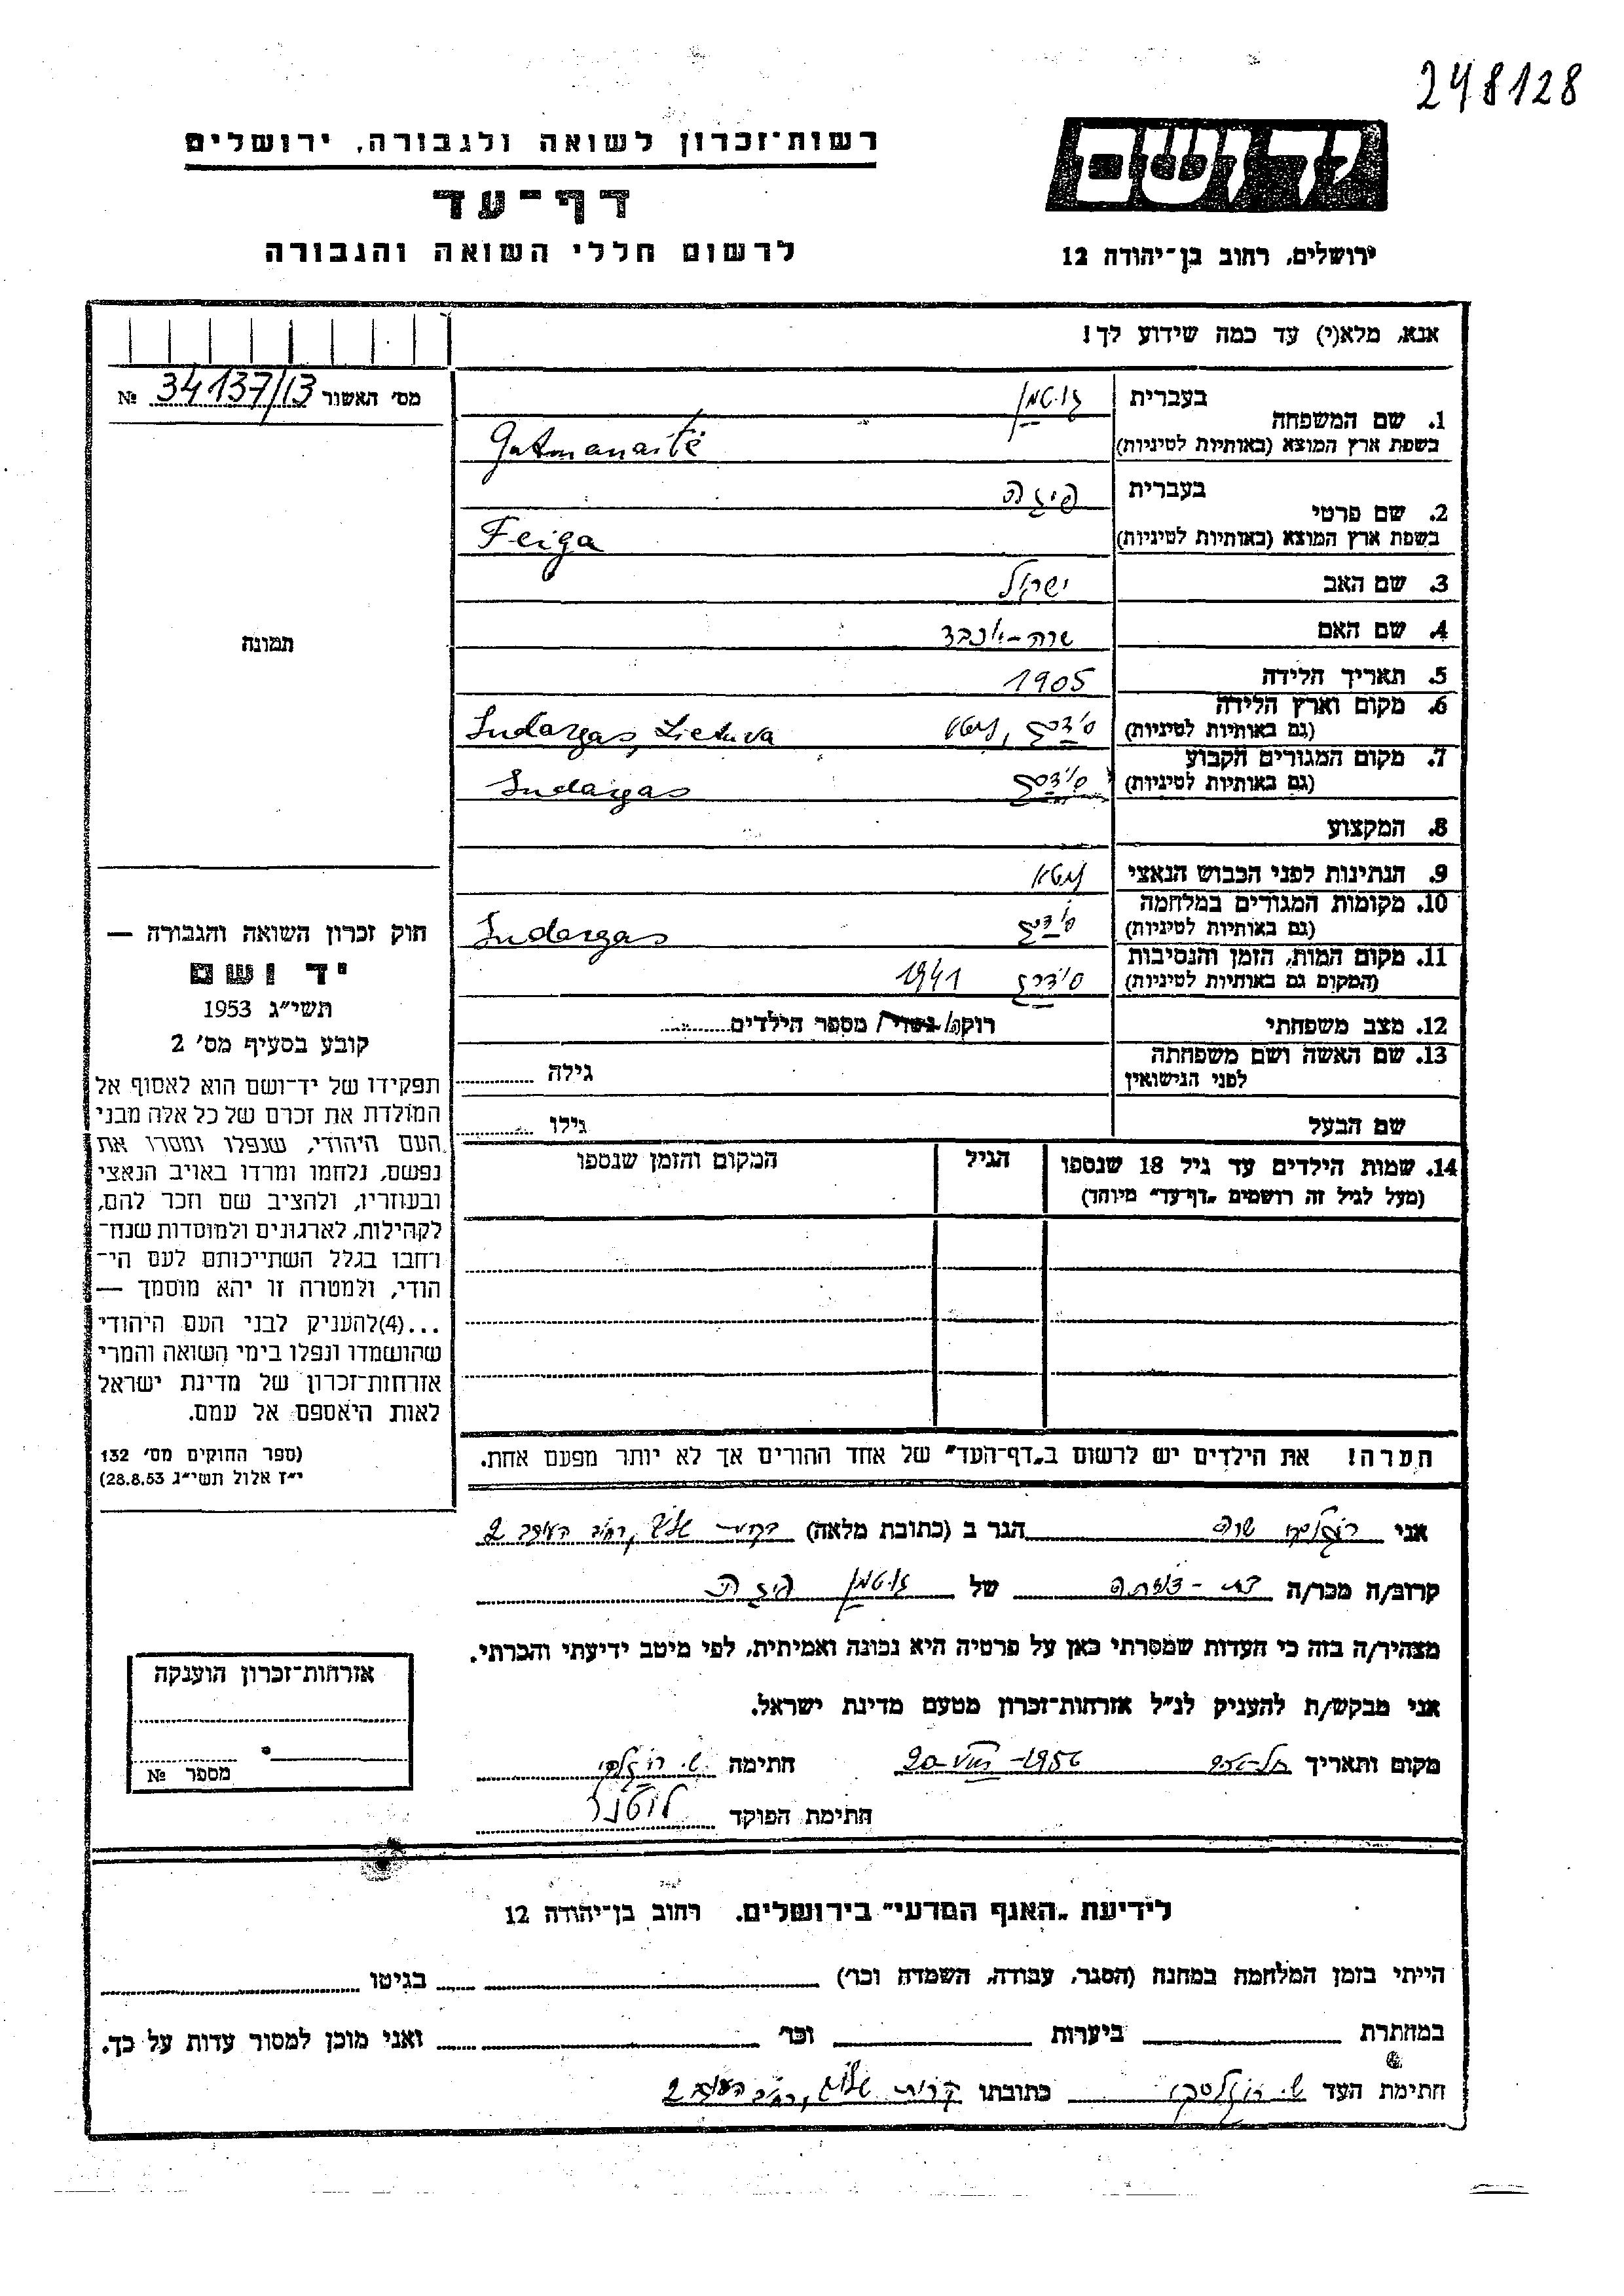 248128
יד ושם
רשות־זכרון לשואה ולגבורה, ירושלים
דף־עד
לרשום חללי השואה והגבורה
ירושלים, רחוב בן־יהודה 12
אנא, מלא(י) עד כמה שידוע לך!
מס' האשור 34137/13 №
1. שם המשפחה
בעברית גוטמן
בשפת ארץ המוצא (באותיות לטיניות) Gutmanaitė
2. שם פרטי
בעברית פייגה
בשפת ארץ המוצא (באותיות לטיניות) Feiga
3. שם האב
4. שם האם שרה-יוכבד
5. תאריך הלידה 1905
6. מקום וארץ הלידה
(גם באותיות לטיניות) Sudargas, Lietuva
7. מקום המגורים הקבוע
(גם באותיות לטיניות) Sudargas
8. המקצוע
9. הנתינות לפני הכבוש הנאצי ליטא
10. מקומות המגורים במלחמה
(גם באותיות לטיניות) Sudargas
11. מקום המות, הזמן והנסיבות
(המקום גם באותיות לטיניות) 1941
12. מצב משפחתי רווקה/ נשוי/ מספר הילדים
13. שם האשה ושם משפחתה
לפני הנישואין גילה
שם הבעל גילו
14. שמות הילדים עד גיל 18 שנספו
(מעל לגיל זה רושמים "דף־עד" מיוחד)
הגיל
המקום והזמן שנספו
תמונה
חוק זכרון השואה והגבורה —
יד ושם
תשי"ג 1953
קובע בסעיף מס' 2
תפקידו של יד־ושם הוא לאסוף אל
המולדת את זכרם של כל אלה מבני
העם היהודי, שנפלו ומסרו את
נפשם, נלחמו ומרדו באויב הנאצי
ובעוזריו, ולהציב שם וזכר להם,
לקהילות, לארגונים ולמוסדות שנח־
רחבו בגלל השתייכותם לעם הי־
הודי, ולמטרה זו יהא מוסמך —
...(4)להעניק לבני העם היהודי
שהושמדו ונפלו בימי השואה והמרי
אזרחות־זכרון של מדינת ישראל
לאות היאספם אל עמם.
(ספר החוקים מס' 132
י"ז אלול תשי"ג 28.8.53)
הערה! את הילדים יש לרשום ב"דף־העד" של אחד ההורים אך לא יותר מפעם אחת.
אני שרה הגר ב (כתובת מלאה) קרית שלום, רחוב 2
קרוב/ה מכר/ה בת-דודתה של גוטמן פייגה
מצהיר/ה בזה כי העדות שמסרתי כאן על פרטיה היא נכונה ואמיתית, לפי מיטב ידיעתי והכרתי.
אני מבקש/ת להעניק לנ"ל אזרחות־זכרון מטעם מדינת ישראל.
מקום ותאריך תל-אביב 20-VIII-1956 חתימה ש.
חתימת הפוקד
אזרחות־זכרון הוענקה
מספר №
לידיעת "האגף המדעי" בירושלים. רחוב בן־יהודה 12
הייתי בזמן המלחמה במחנה (הסגר, עבודה, השמדה וכו') בגיטו
במחתרת ביערות וכו' ואני מוכן למסור עדות על כך.
חתימת העד ש. כתובתו קרית שלום, רחוב 2